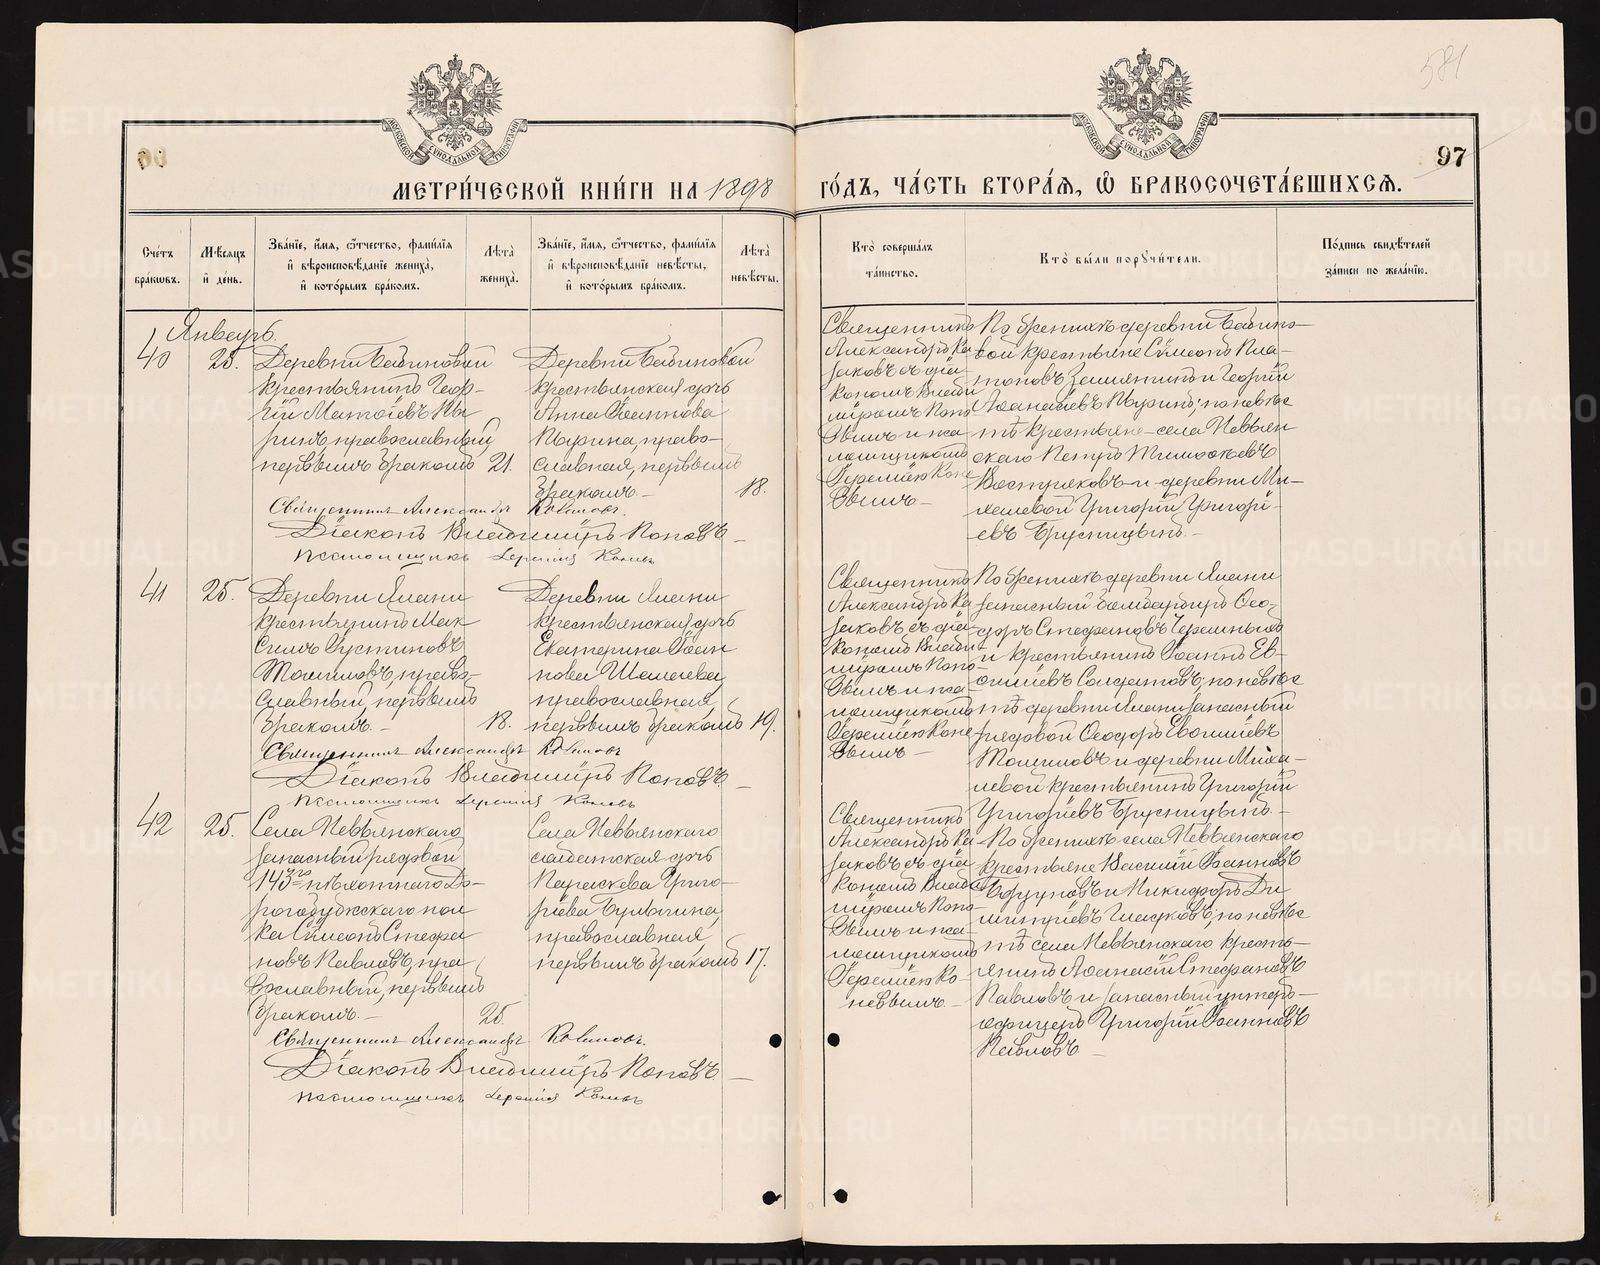 581
97
МЕТРИ́ЧЕСКОЙ КНИ́ГИ НА 1898 ГО́ДЪ, ЧА́СТЬ ВТОРА́Ѧ, Ѽ БРАКОСОЧЕТА́ВШИХСѦ.
Сче́тъ бра́кѡвъ.
Мѣ́сѧцъ и҆ де́нь.
Зва́нїе, и҆́мѧ, ѻ҆́тчество, фами́лїѧ
и҆ вѣроисповѣ́данїе жениха̀,
и҆ кото́рымъ бра́комъ.
Лѣ́та̀ жениха̀.
Зва́нїе, и҆́мѧ, ѻ҆́тчество, фами́лїѧ
и҆ вѣроисповѣ́данїе невѣ́сты,
и҆ кото́рымъ бра́комъ.
Лѣ́та̀ невѣ́сты.
Кто̀ соверша́лъ
та́инство.
Кто̀ бы́ли порꙋчи́тели.
По́дпись свидѣ́телей
за́писи по жела́нїю.
Январь.
40
25.
Деревни
крестьянинъ Геор-
гій Матѳіевъ Пы
ринъ православный,
первымъ бракомъ 21.
Деревни
крестьянская дочь
Анна Іоаннова
Пырина, право-
славная, первымъ
бракомъ - 18.
Священникъ
Александръ Ка
заковъ съ діа
кономъ Влади
міромъ Попо
вымъ и пса
ломщикомъ
Іереміею Коне
вымъ -
По женихѣ деревни
вой крестьяне Сѵмеонъ Пла-
тоновъ Земляницынъ и Георгій
Аѳанасіевъ Пыринъ; по невѣс
тѣ крестьяне - села Невьян
скаго Петръ Тимоѳеевъ
Востряковъ и деревни Ми-
халевой Григорій Григорі-
евъ Брусницынъ -
Священникъ Александръ Казаковъ.
Діаконъ Владиміръ Поповъ -
псаломщикъ Іеремія Коневъ
41
25.
Деревни Ялани
крестьянинъ Мак
симъ Іустиновъ
Томиловъ, право-
славный, первымъ
бракомъ - 18.
Деревни Ялани
крестьянская дочь
Екатерина Іоан
нова
православная,
первымъ бракомъ 19.
Священникъ
Александръ Ка
заковъ съ діа
кономъ Влади
міромъ Попо-
вымъ и пса-
ломщикомъ
Іереміею Коне
вымъ -
По женихѣ деревни Ялани
запасный бомбардиръ Ѳео-
доръ Стефановъ
и крестьянинъ Іоаннъ Ев-
ѳиміевъ Солдатовъ; по невѣс
тѣ деревни Ялани запасный
рядовой Ѳеодоръ Евѳиміевъ
Томиловъ и деревни Миха-
левой крестьянинъ Григорій
Григоріевъ Брусницынъ -
Священникъ Александръ Казаковъ
Діаконъ Владиміръ Поповъ -
псаломщикъ Іеремія Коневъ
42
25.
Села Невьянскаго
запасный рядовой
143го пѣхотнаго До-
рогобужскаго пол
ка Сѵмеонъ Стефа
новъ Павловъ, пра
вославный, первымъ
бракомъ - 25.
Села Невьянскаго
солдатская дочь
Параскева Григо-
ріева Булыгина,
православная,
первымъ бракомъ 17.
Священникъ
Александръ Ка-
заковъ съ діа
кономъ Влади
міромъ Попо-
вымъ и пса-
ломщикомъ
Іереміею Ко-
невымъ -
По женихѣ села Невьянскаго
крестьяне Василій Іоанновъ
и Никифоръ Ди
митріевъ Гладковъ; по невѣс
тѣ села Невьянскаго кресть-
янинъ Аѳанасій Стефановъ
Павловъ и запасный унтеръ-
офицеръ Григорій Іоанновъ
Павловъ -
Священникъ Александръ Казаковъ.
Діаконъ Владиміръ Поповъ -
псаломщикъ Іеремія Коневъ